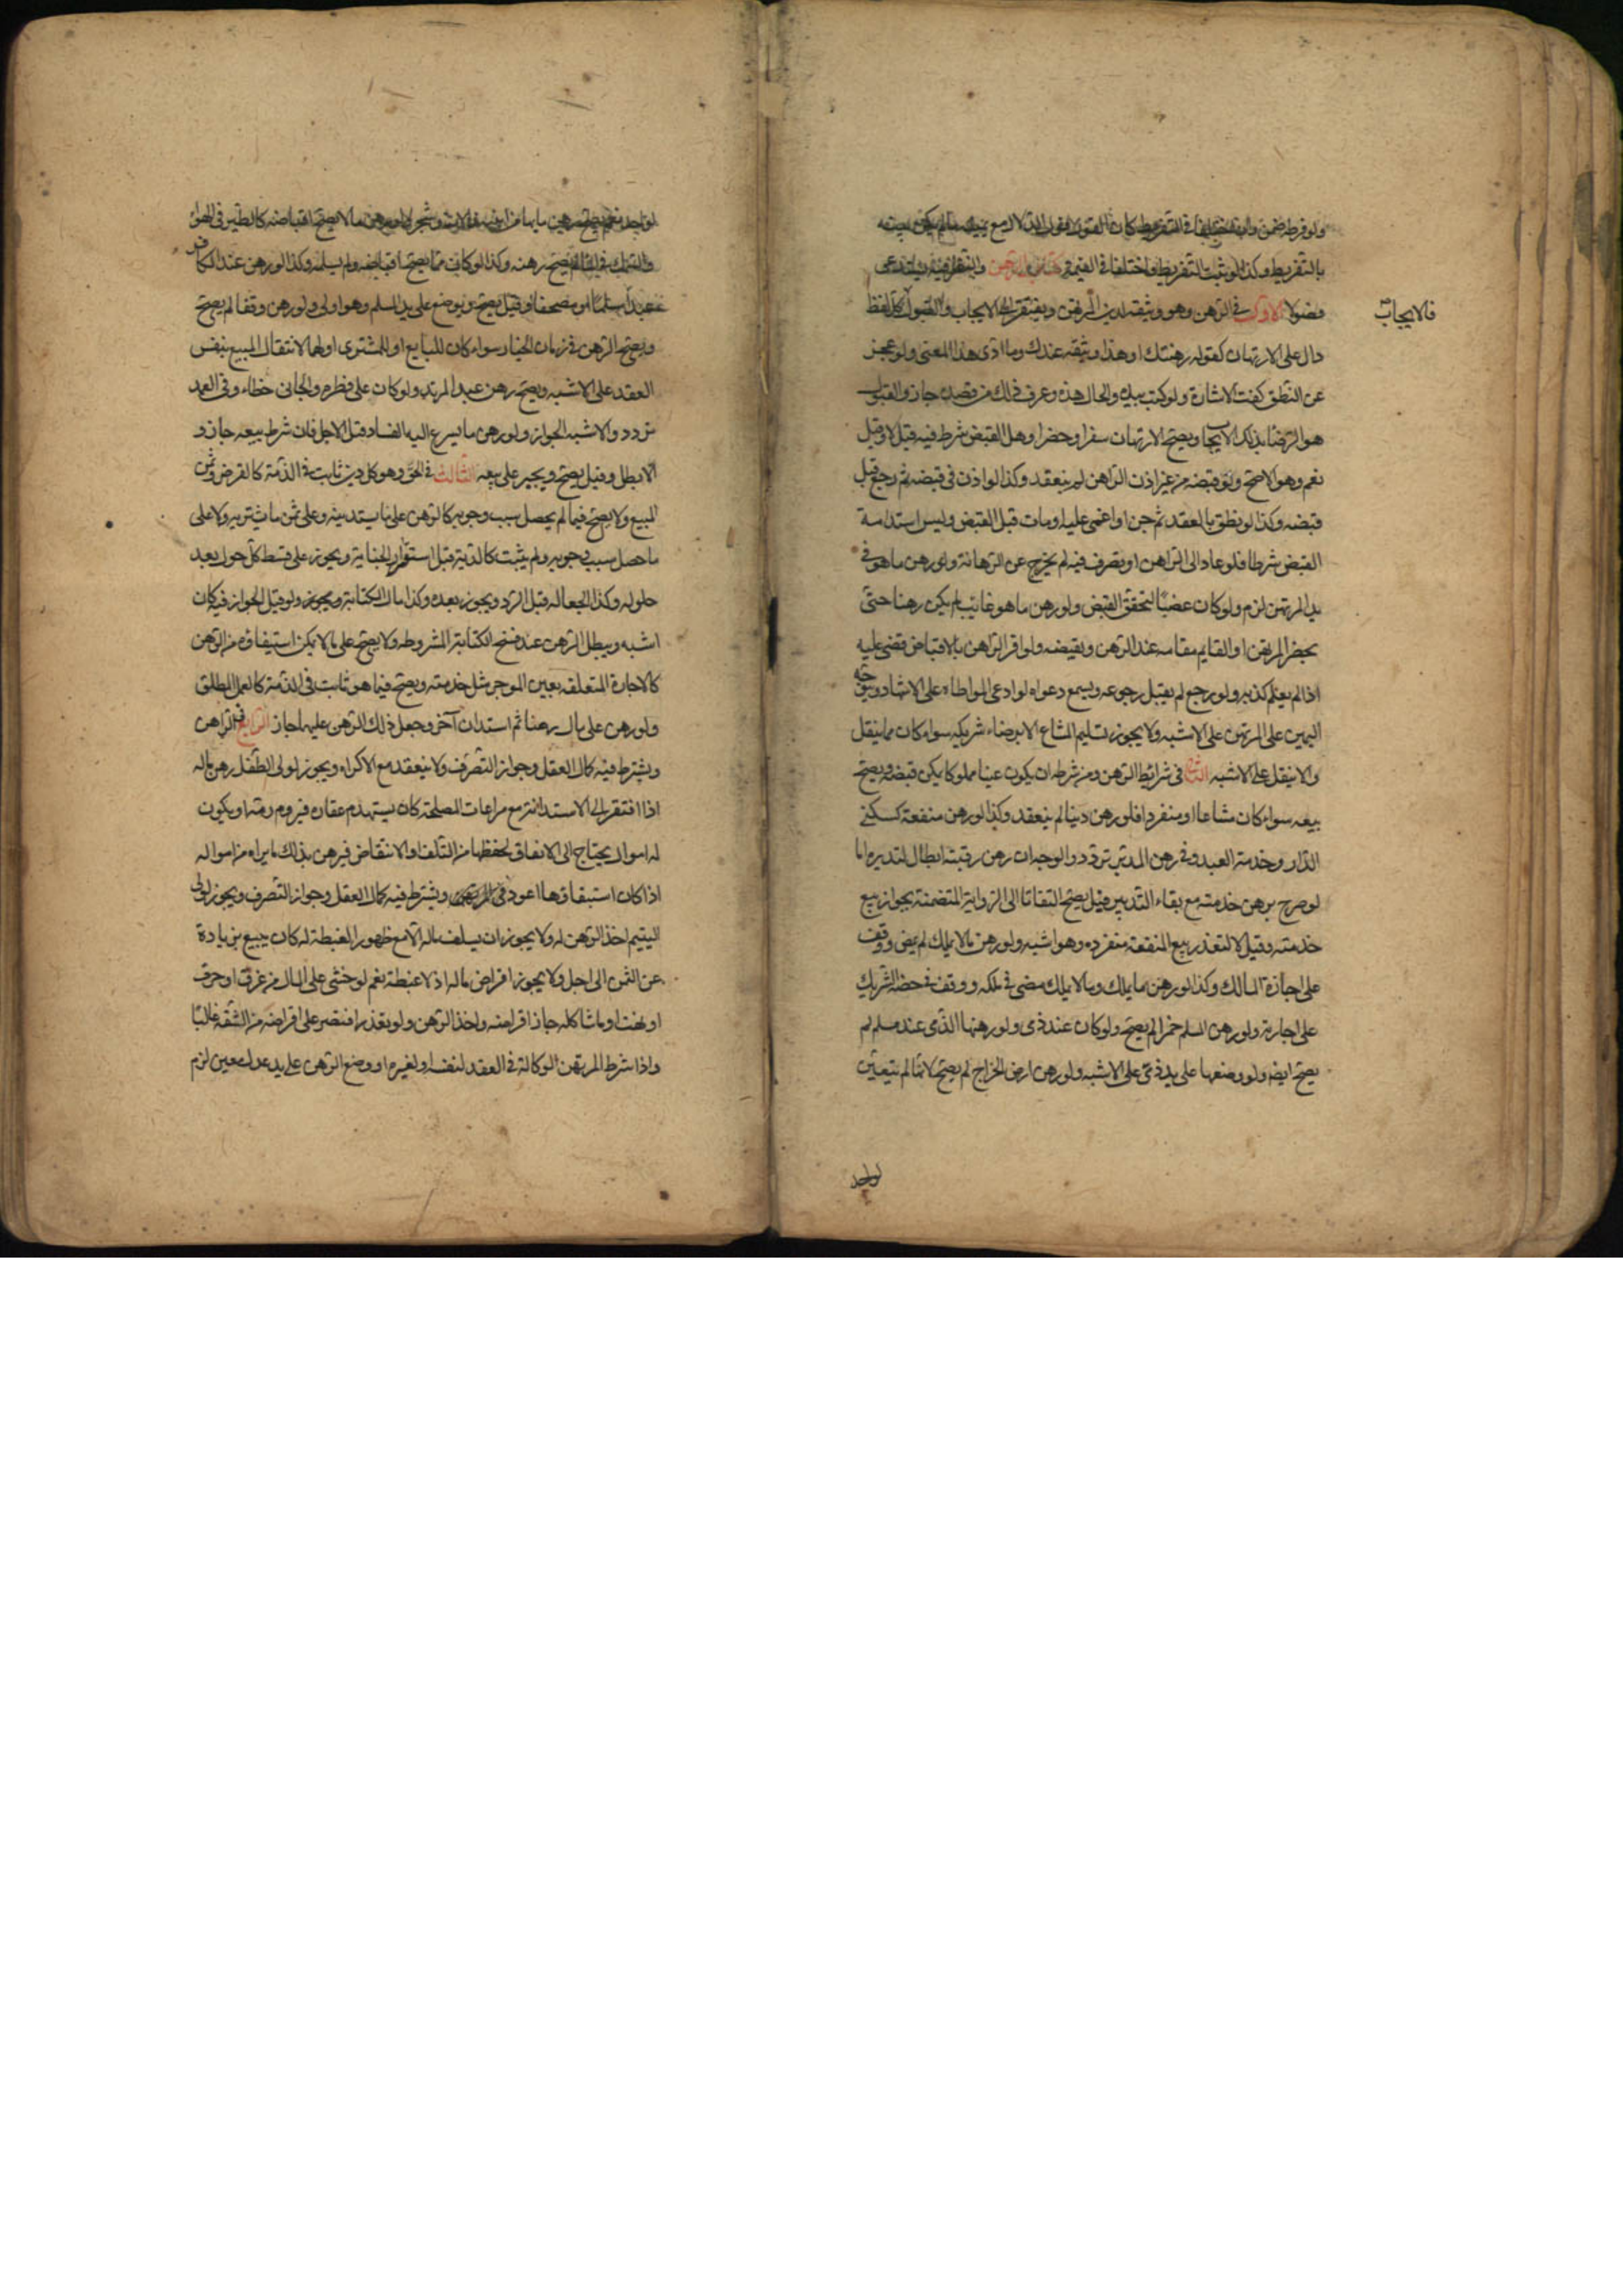 ولو فرط ضمن ولو اختلفا في التفريط كان القول قول الدلال مع يمينه ما لم يكن بينة
بالتفريط وكذا لو ثبت التفريط واختلفا في القيمة كتاب الرهن والنظر فيه يستدعي
فصولا الاول في الرهن وهو وثيقة لدين المرتهن ويفتقر الى الايجاب والقبول كل لفظ
فالايجاب
دال على الارتهان كقوله رهنتك او هذا وثيقة عندك وما ادى هذا المعنى ولو عجز
عن النطق كفت الاشارة ولو كتب بيده والحال هذه وعرف ذلك من قصده جاز والقبول
هو الرضا بذلك الايجاب ويصح الارتهان سفرا وحضرا وهل القبض شرط فيه قيل لا وقيل
نعم وهو الاصح ولو قبضه من غير اذن الراهن لم ينعقد وكذا لو اذن في قبضه ثم رجع قبل
قبضه وكذا لو نطق بالعقد ثم جن او اغمى عليه او مات قبل القبض وليس استدامة
القبض شرطا فلو عاد الى الراهن او تصرف فيه لم يخرج عن الرهانة ولو رهن ما هو في
يد المرتهن لزم ولو كان غصبا لتحقق القبض ولو رهن ما هو غائب لم يكن رهنا حتى
يحضر المرتهن او القايم مقامه عند الرهن ويقبضه ولو اقر الراهن بالاقباض قضى عليه
اذا لم يعلم كذبه ولو رجع لم يقبل رجوعه ويسمع دعواه لو ادعى المواطاة على الاشهاد ويتوجه
اليمين على المرتهن على الاشبه ولا يجوز تسليم المشاع الا برضاء شريكه سواء كان مما ينقل
او لا ينقل على الاشبه الثاني في شرايط الرهن ومن شرطه ان يكون عينا مملوكا يمكن قبضه ويصح
بيعه سواء كان مشاعا او منفردا فلو رهن دينا لم ينعقد وكذا لو رهن منفعة كسكنى
الدار وخدمة العبد وفي رهن المدبر تردد والوجه ان رهن رقبته ابطال لتدبيره اما
لو صرح برهن خدمته مع بقاء التدبير قيل يصح التفاتا الى الرواية المتضمنة بجواز بيع
خدمته وقيل لا لتعذر بيع المنفعة منفرده وهو اشبه ولو رهن ما لا يملك لم يمض ووقف
على اجازة المالك وكذا لو رهن ما يملك وما لا يملك مضى في ملكه ووقف في حصة الشريك
على اجازته ولو رهن المسلم خمرا لم يصح ولو كان عند ذمى ولو رهنها الذمى عند مسلم لم
يصح ايضا ولو وضعها على يد ذمى على الاشبه ولو رهن ارض الخراج لم يصح لانها لم يتعين
لواحد
لواحد نعم يصح رهن ما بها من ابنية وآلات وشجر ولو رهن ما لا يصح اقباضه كالطير في الهواء
والسمك في الماء لم يصح رهنه وكذا لو كان مما يصح اقباضه ولم يسلمه وكذا لو رهن عند الكافر
عبدا مسلما او مصحفا وقيل يصح ويوضع على يد المسلم وهو اولى ولو رهن وقفا لم يصح
ويصح الرهن في زمان الخيار سواء كان للبايع او للمشترى او لهما لانتقال المبيع بنفس
العقد على الاشبه ويصح رهن عبد المرتد ولو كان على فطرة والجاني خطاء وفي العمد
تردد والاشبه الجواز ولو رهن ما يسرع اليه الفساد قبل الاجل فان شرط بيعه جاز و
الا بطل وقيل يصح ويجبر على بيعه الثالث في الحق وهو كل دين ثابت في الذمة كالقرض وثمن
المبيع ولا يصح فيما لم يحصل سبب وجوبه كالرهن على ما يستدينه وعلى ثمن ما يشتريه ولا على
ما حصل سبب وجوبه ولم يثبت كالدية قبل استقرار الجناية ويجوز على قسط كل حول بعد
حلوله وكذا الجعالة قبل الرد ويجوز بعده وكذا مال الكتابة ويجوز ولو قيل الجواز فيه كان
اشبه ويبطل الرهن عند فسخ الكتابة المشروطه ولا يصح على ما لا يمكن استيفاؤه من الرهن
كالاجارة المتعلقه بعين الموجر مثل خدمته ويصح فيما هو ثابت في الذمة كالعمل المطلق
ولو رهن على مال رهنا ثم استدان آخر وجعل ذلك الرهن عليهما جاز الرابع في الراهن
ويشترط فيه كمال العقل وجواز التصرف ولا ينعقد مع الاكراه ويجوز لولى الطفل رهن ماله
اذا افتقر الى الاستدانة مع مراعات المصلحة كان يستهدم عقاره فيروم رمته او يكون
له اموال يحتاج الى الانفاق لحفظها من التلف او الانتقاص فيرهن بذلك ما يراه من امواله
اذا كان استبقاؤها اعود في المرتهن ويشترط فيه كمال العقل وجواز التصرف ويجوز لولى
اليتيم اخذ الرهن له ولا يجوز ان يسلف ماله الا مع ظهور الغبطة له كان يبيع بزيادة
عن الثمن الى اجل ولا يجوز اقراض ماله اذ لا غبطة نعم لو خشى على المال من غرق او حرق
او نهب او ما شاكله جاز اقراضه واخذ الرهن ولو تعذر اقتصر على اقراضه من الثقة غالبا
واذا شرط المرتهن الوكالة في العقد لنفسه او لغيره او وضع الرهن على يد عدل معين لزم